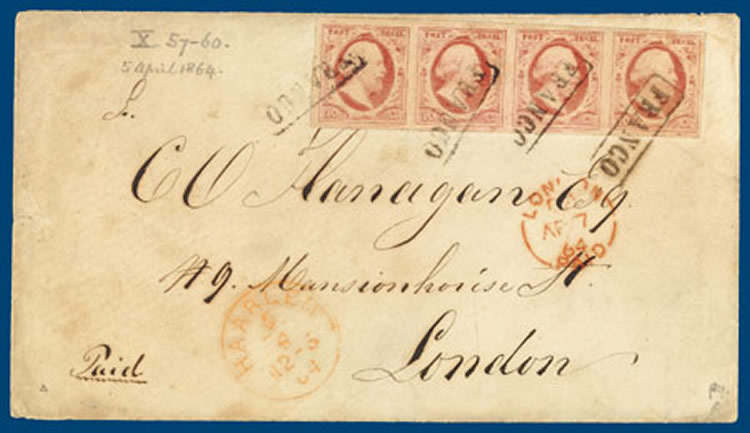 X 57-60.
5 April 1864.
POST ZEGEL
POST ZEGEL
POST ZEGEL
POST ZEGEL
FRANCO
FRANCO
FRANCO
FRANCO
C O Flanagan Esq.
LONDON
AP 7
64
PAID
49. Mansionhouse St.
HAARLEM
London
Paid